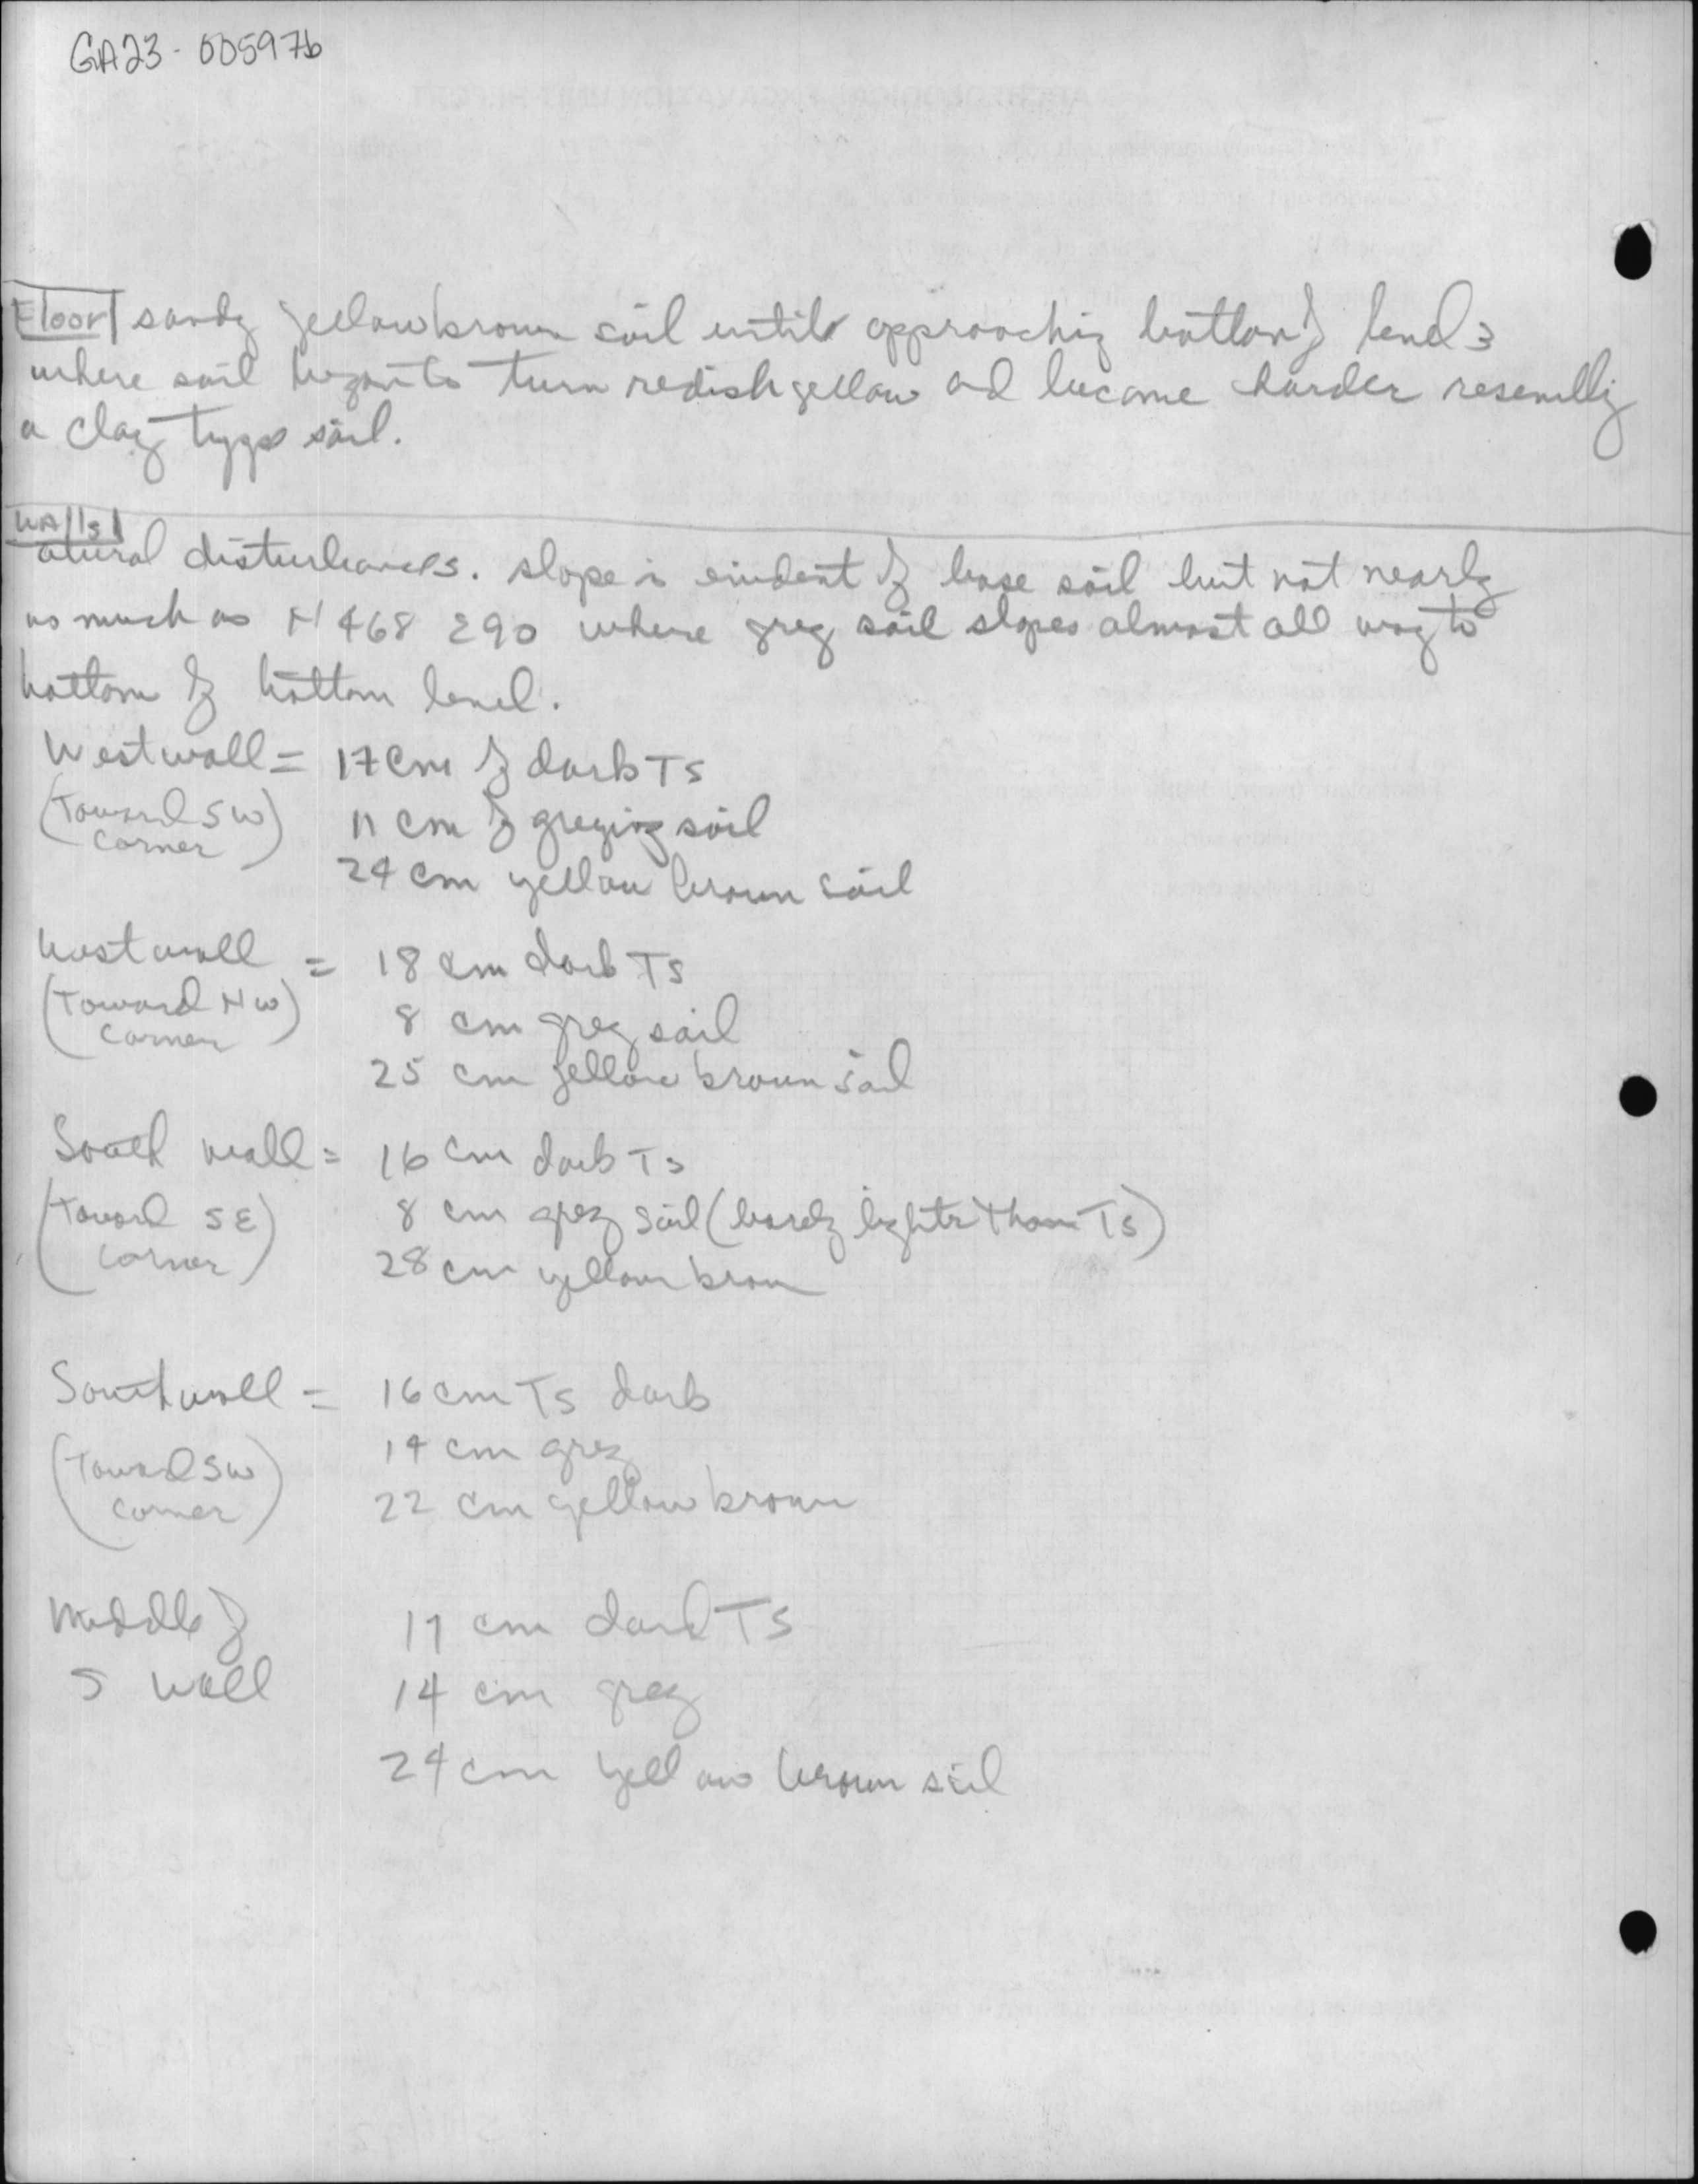 GA23-00597b
Floor sandy yellow brown soil until approaching bottom of level 3
where soil began to turn redish yellow and become harder resembling
a clay type soil.
Walls
atural disturbances. slope is evident of base soil but not nearly
as much as N 468 E90 where grey soil slopes almost all way to
bottom of bottom level.
West wall = 17 cm of dark TS
(Toward SW corner) 11 cm of greying soil
24 cm yellow brown soil
West wall = 18 cm dark TS
(Toward NW corner) 8 cm grey soil
25 cm yellow brown soil
South wall = 16 cm dark TS
(Toward SE corner) 8 cm grey soil (barely lighter than TS)
28 cm yellow brown
South wall = 16 cm TS dark
(Toward SW corner) 14 cm grey
22 cm yellow brown
Middle of 17 cm dark TS
S wall 14 cm grey
24 cm yellow brown soil